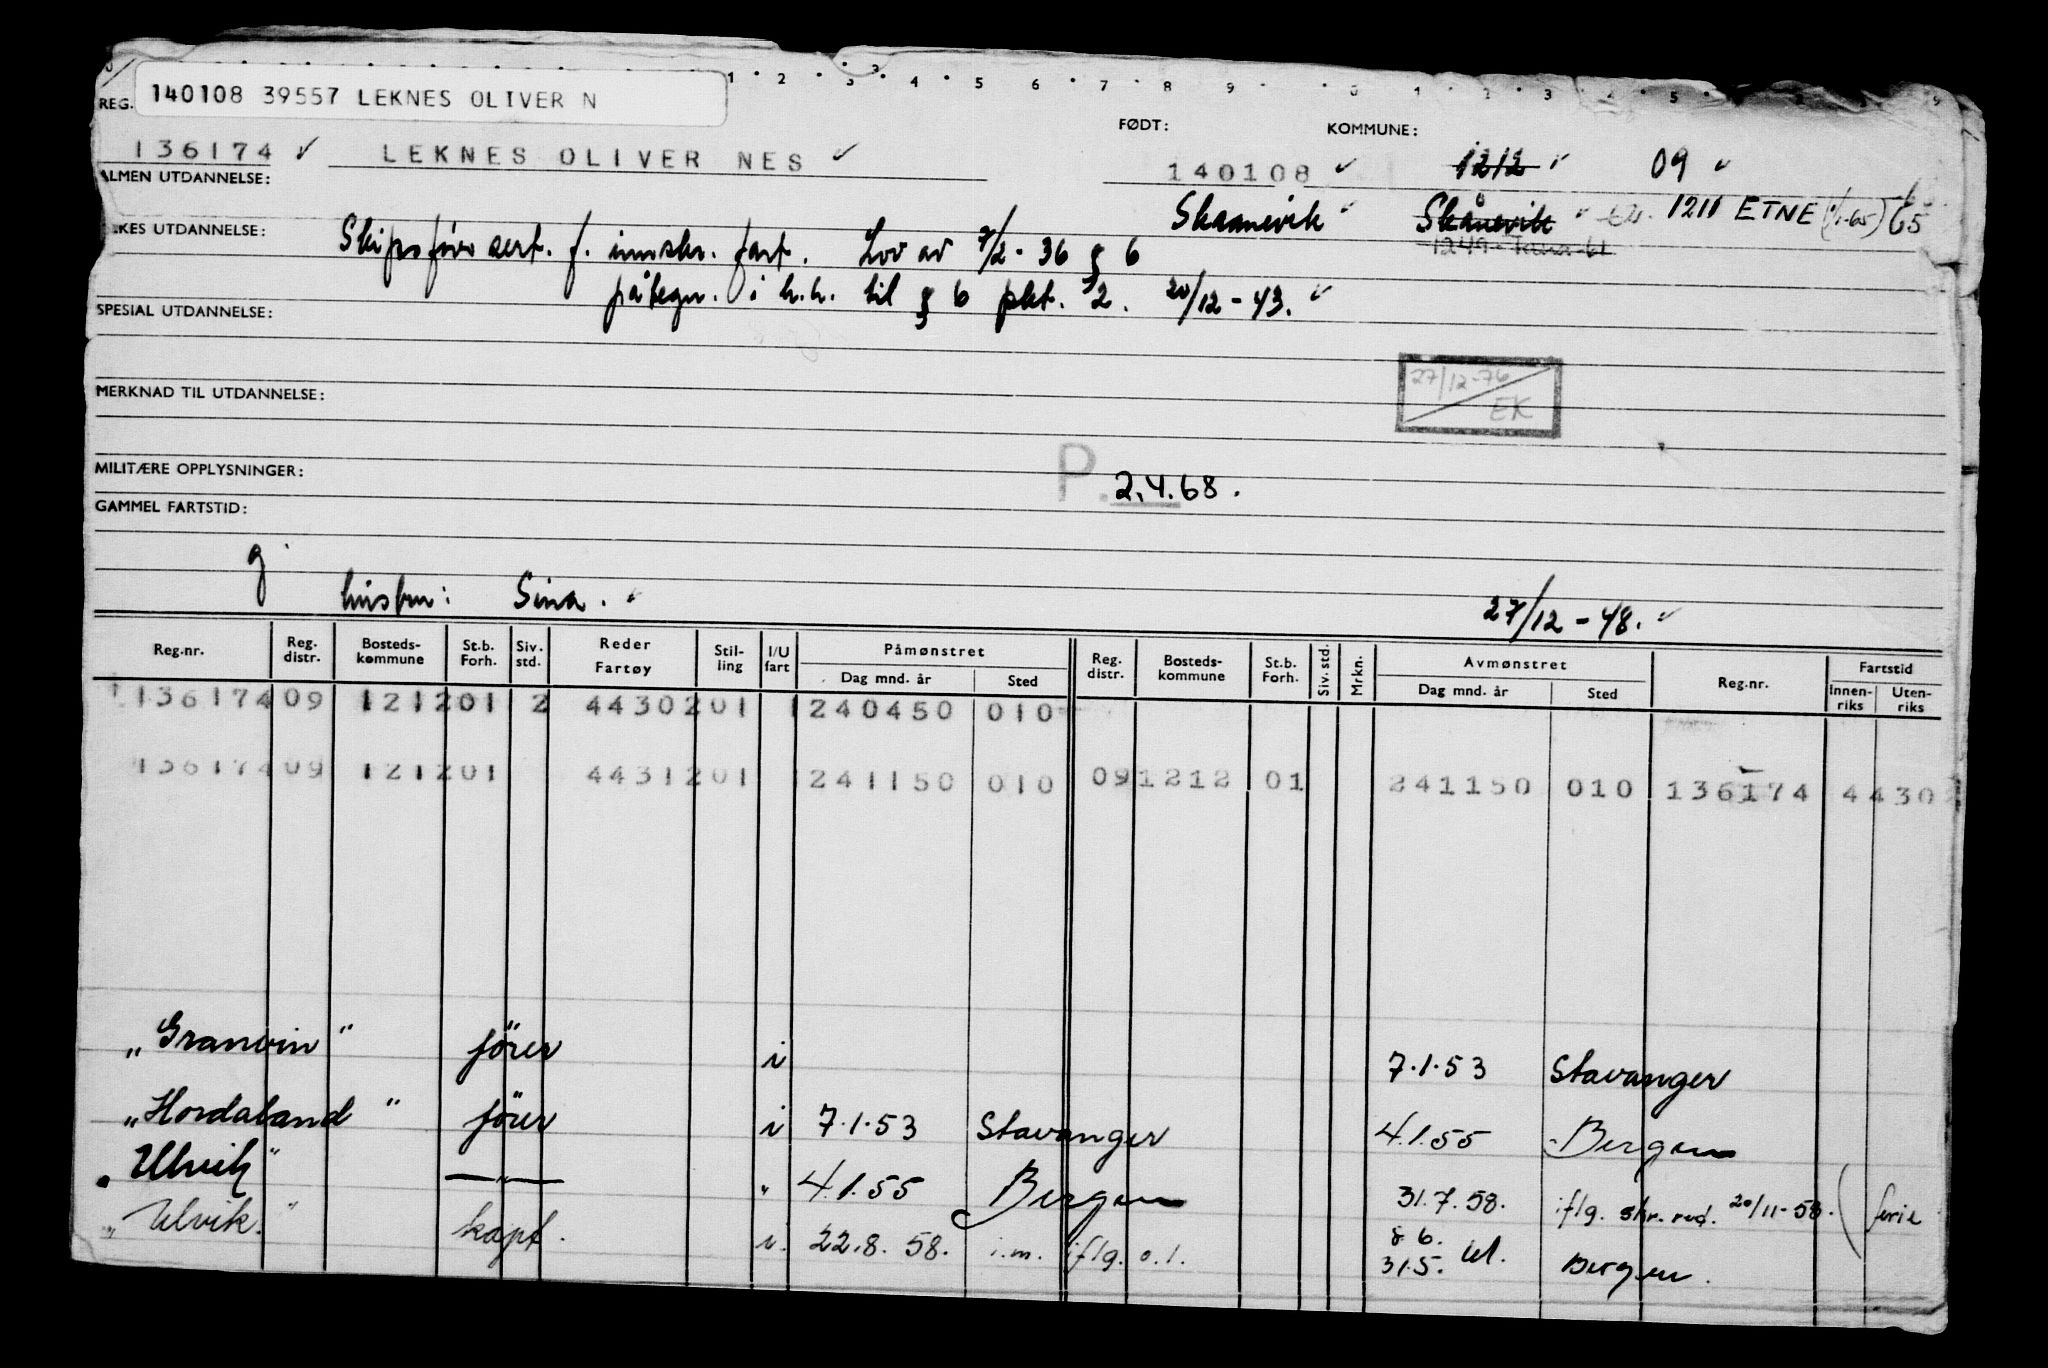 1 2 3 4 5 6 7 8 9 0 1 2 3 4 5
140108 39557 LEKNES OLIVER N
REG.
FØDT: KOMMUNE:
136174 ✓ LEKNES OLIVER NES ✓ 140108 ✓ 1212 ✓ 09 ✓
ALMEN UTDANNELSE: Skaanevik Skånevik 1211 ETNE (1/1-65) 65
KES UTDANNELSE: Skipsförersert. f. innskr. fart. Lov av 7/2-36 § 6
påtegn. i h.h. til § 6 pkt. 2. 20/12-43. ✓
SPESIAL UTDANNELSE:
27/12-76
EK
MERKNAD TIL UTDANNELSE:
MILITÆRE OPPLYSNINGER: P. 2.4.68.
GAMMEL FARTSTID:
g
hustru: Sina. 27/12-48. ✓
Reg.nr. Reg. distr. Bosteds-kommune St.b. Forh. Siv. std. Reder Fartøy Stil-ling I/U fart Påmønstret Dag mnd. år Sted Reg. distr. Bosteds-kommune St.b. Forh. Siv. std. Mrkn. Avmønstret Dag mnd. år Sted Reg.nr. Fartstid Innen-riks Uten-riks
136174 09 1212 01 2 4430 201 1 240450 010
136174 09 1212 01 4431 201 241150 010 09 1212 01 241150 010 136174 4430
„Granvin" förer i 7.1.53 Stavanger
„Hordaland" förer i 7.1.53 Stavanger 4.1.55 Bergen
„Ulvik" —"— " 4.1.55 Bergen 31.7.58. iflg. skr. red. 20/11-58. (ferie
„Ulvik." kapt. i. 22.8.58. i.m. iflg. o.l. 8 6.
31.5. 61. Bergen.